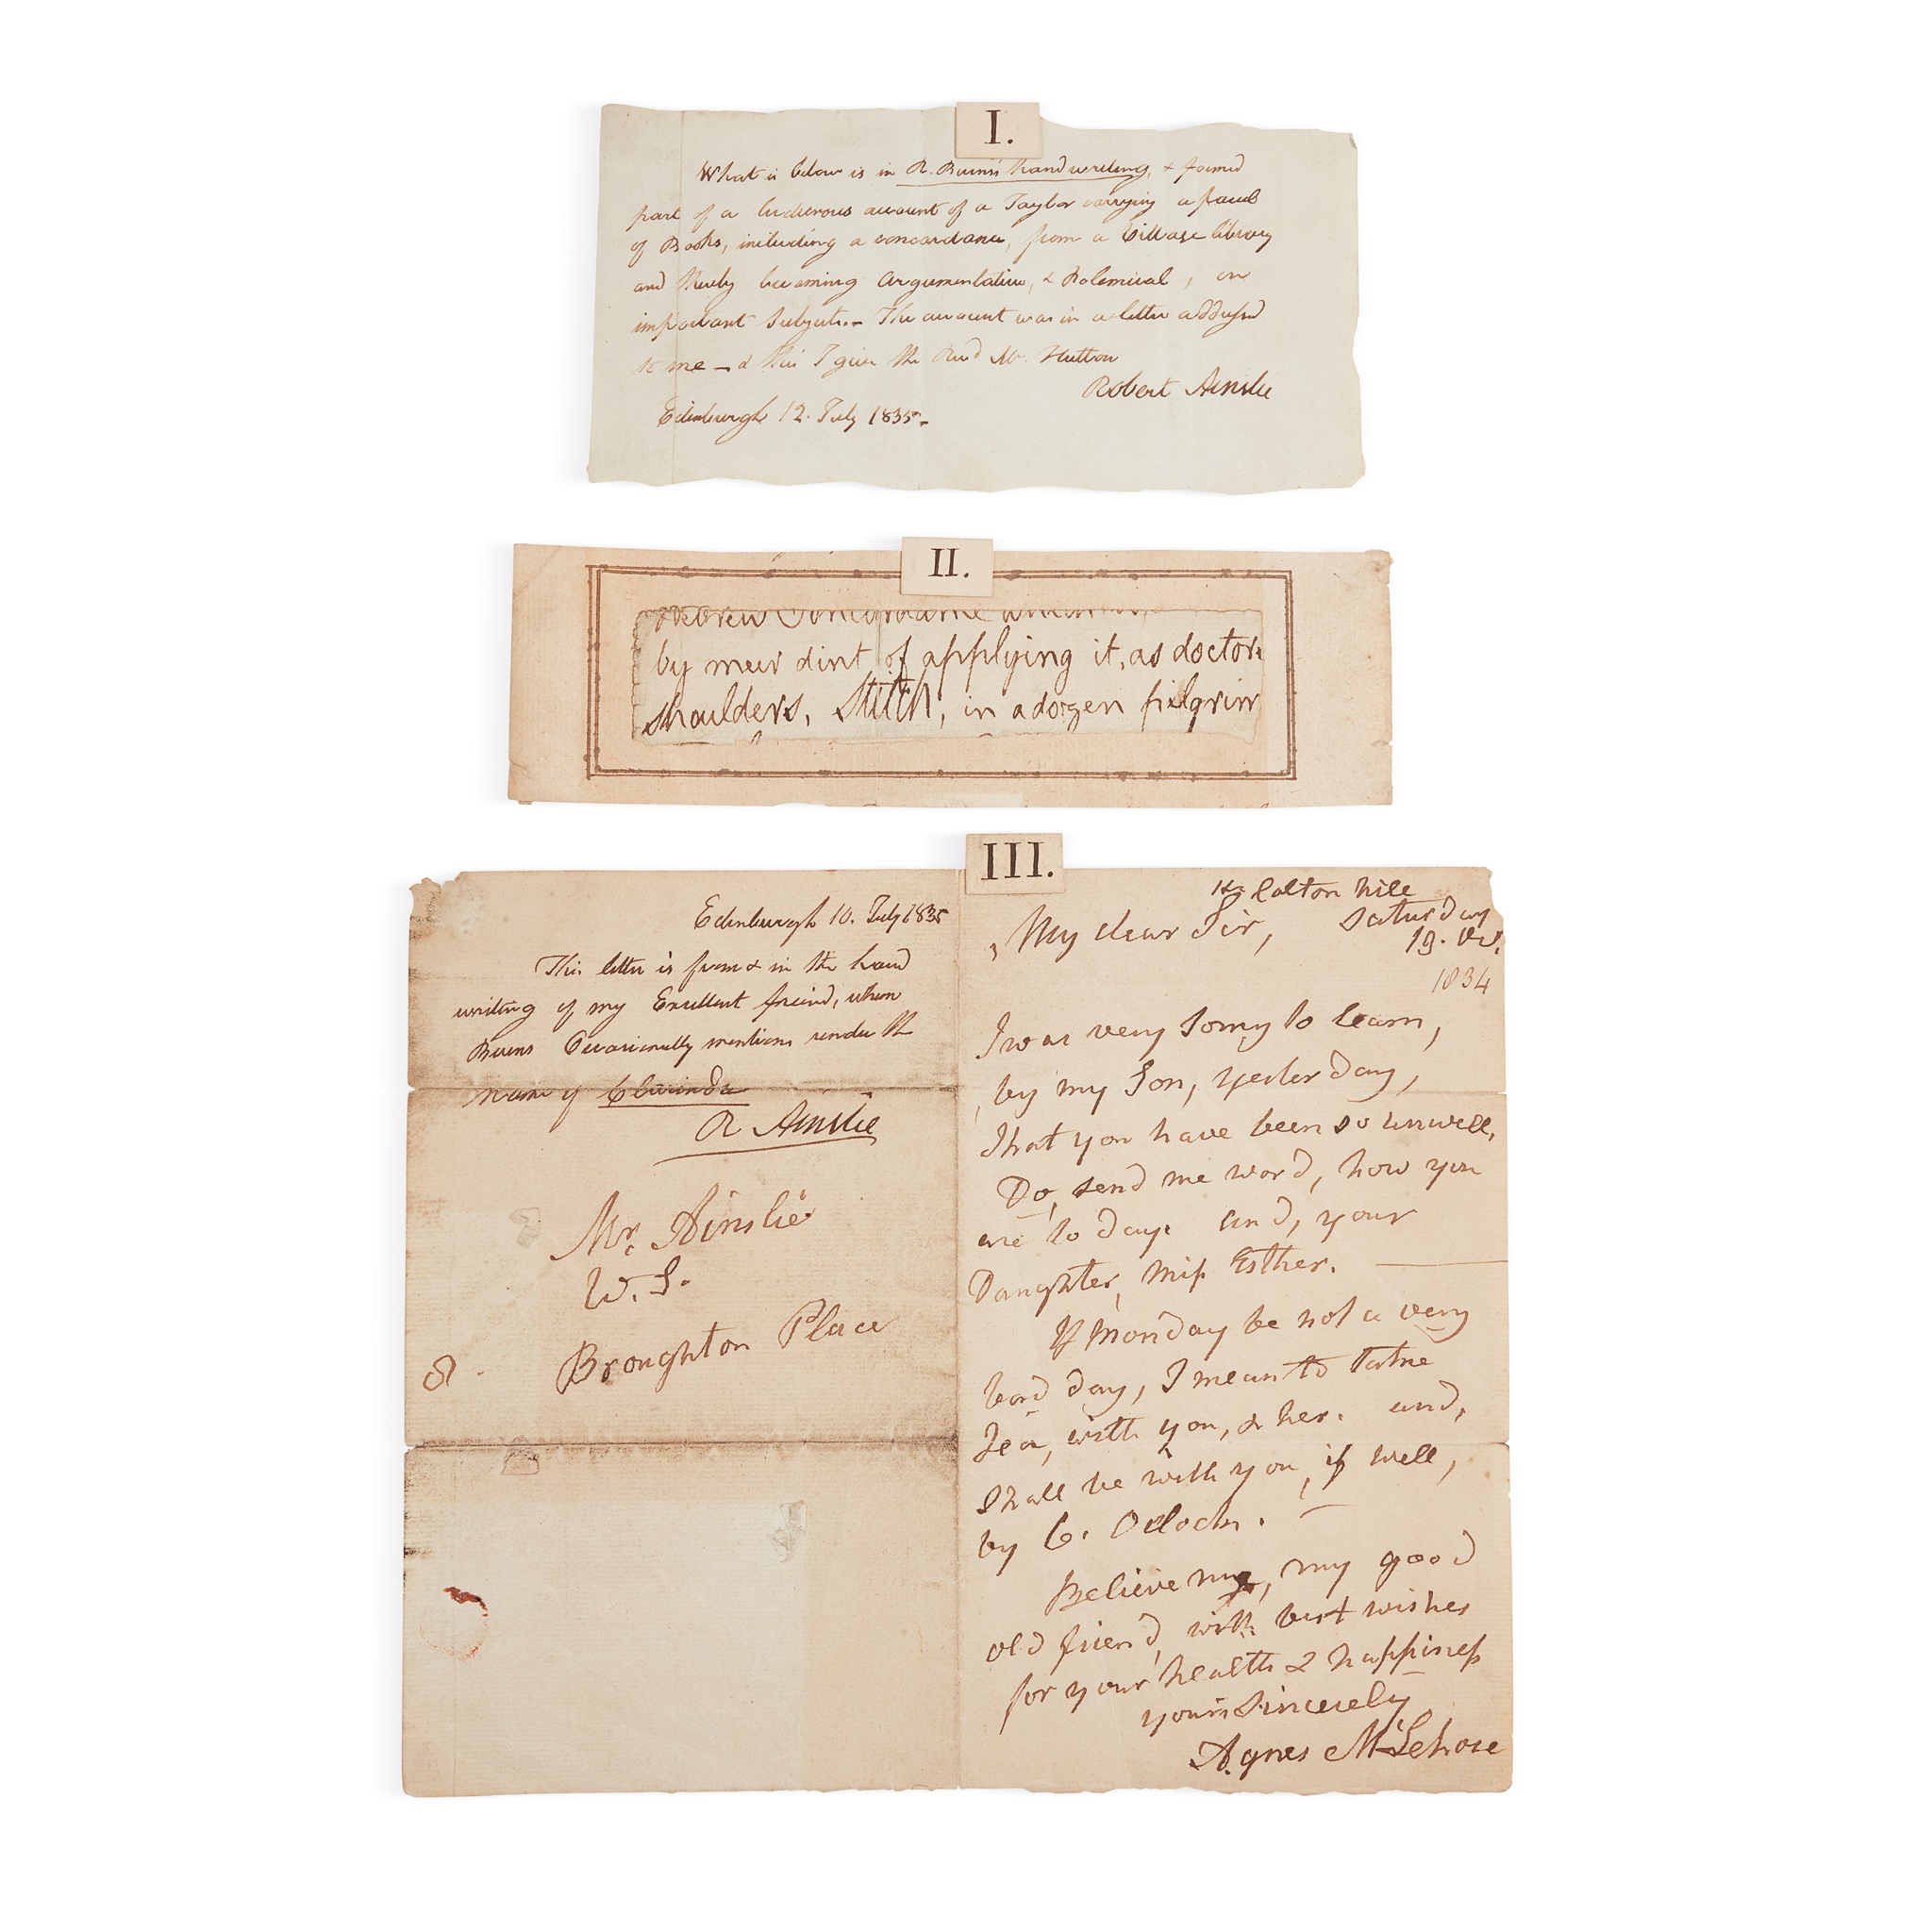 I.
What is below is in R. Burns's handwriting, & formed
part of a ludicrous account of a Taylor carrying a parcel
of Books, including a concordance, from a Village library
and thereby becoming Argumentative, & Polemical, on
important Subjects.— The account was in a letter addressed
to me — & this I give the Revd Mr. Hutton
Robert Ainslie
Edinburgh 12. July 1835.—
II.
Hebrew Concordance
by meer dint of applying it, as doctors
shoulders, Stitch, in a dozen pilgrim
III.
Edinburgh 10. July 1835
This letter is from & in the hand
writing of my Excellent freind, whom
Burns Occasionally mentions under the
name of Clarinda
R Ainslie
Mr. Ainslie
W. S.
Broughton Place
14 Calton hill
Saturday
19.
1834
My dear Sir,
I was very Sorry to learn,
by my Son, yesterday,
That you have been so unwell.
Do, send me word, how you
are to day. and, your
Daughter, Miss Esther. —
If Monday be not a very
bad day, I mean to take
Tea, with you, & her. and,
Shall be with you, if well,
by 6. OClock. —
Believe me, my good
old friend, with best wishes
for your health & happiness
yours Sincerely
Agnes McLehose